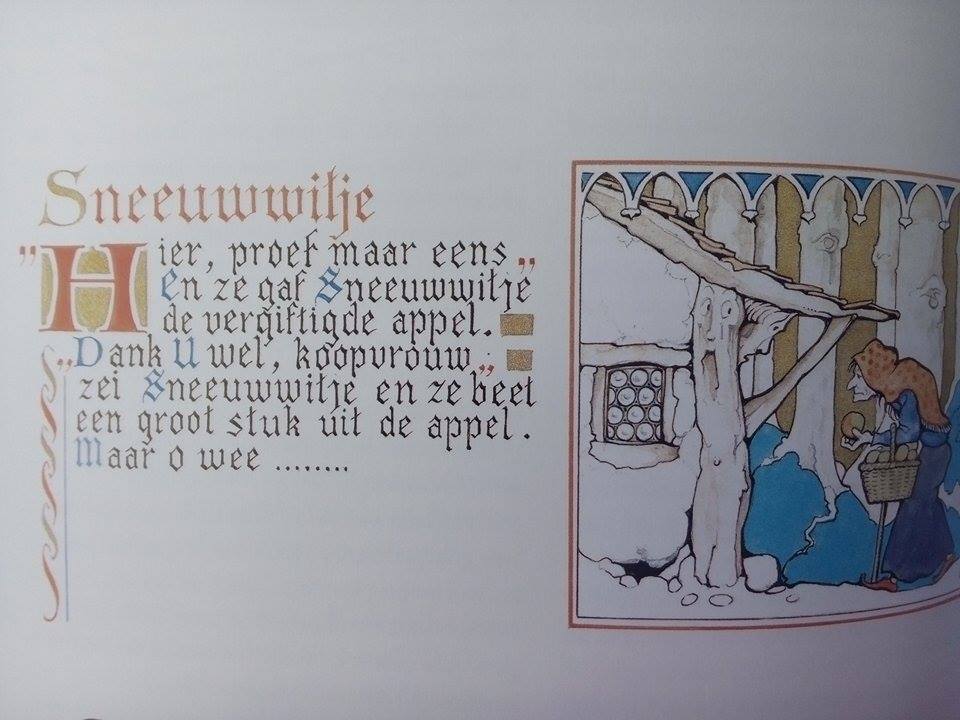 Sneeuwwitje
"Hier, proef maar eens„
En ze gaf Sneeuwwitje
de vergiftigde appel.
„Dank U wel, koopvrouw„
zei Sneeuwwitje en ze beet
een groot stuk uit de appel.
Maar o wee ........